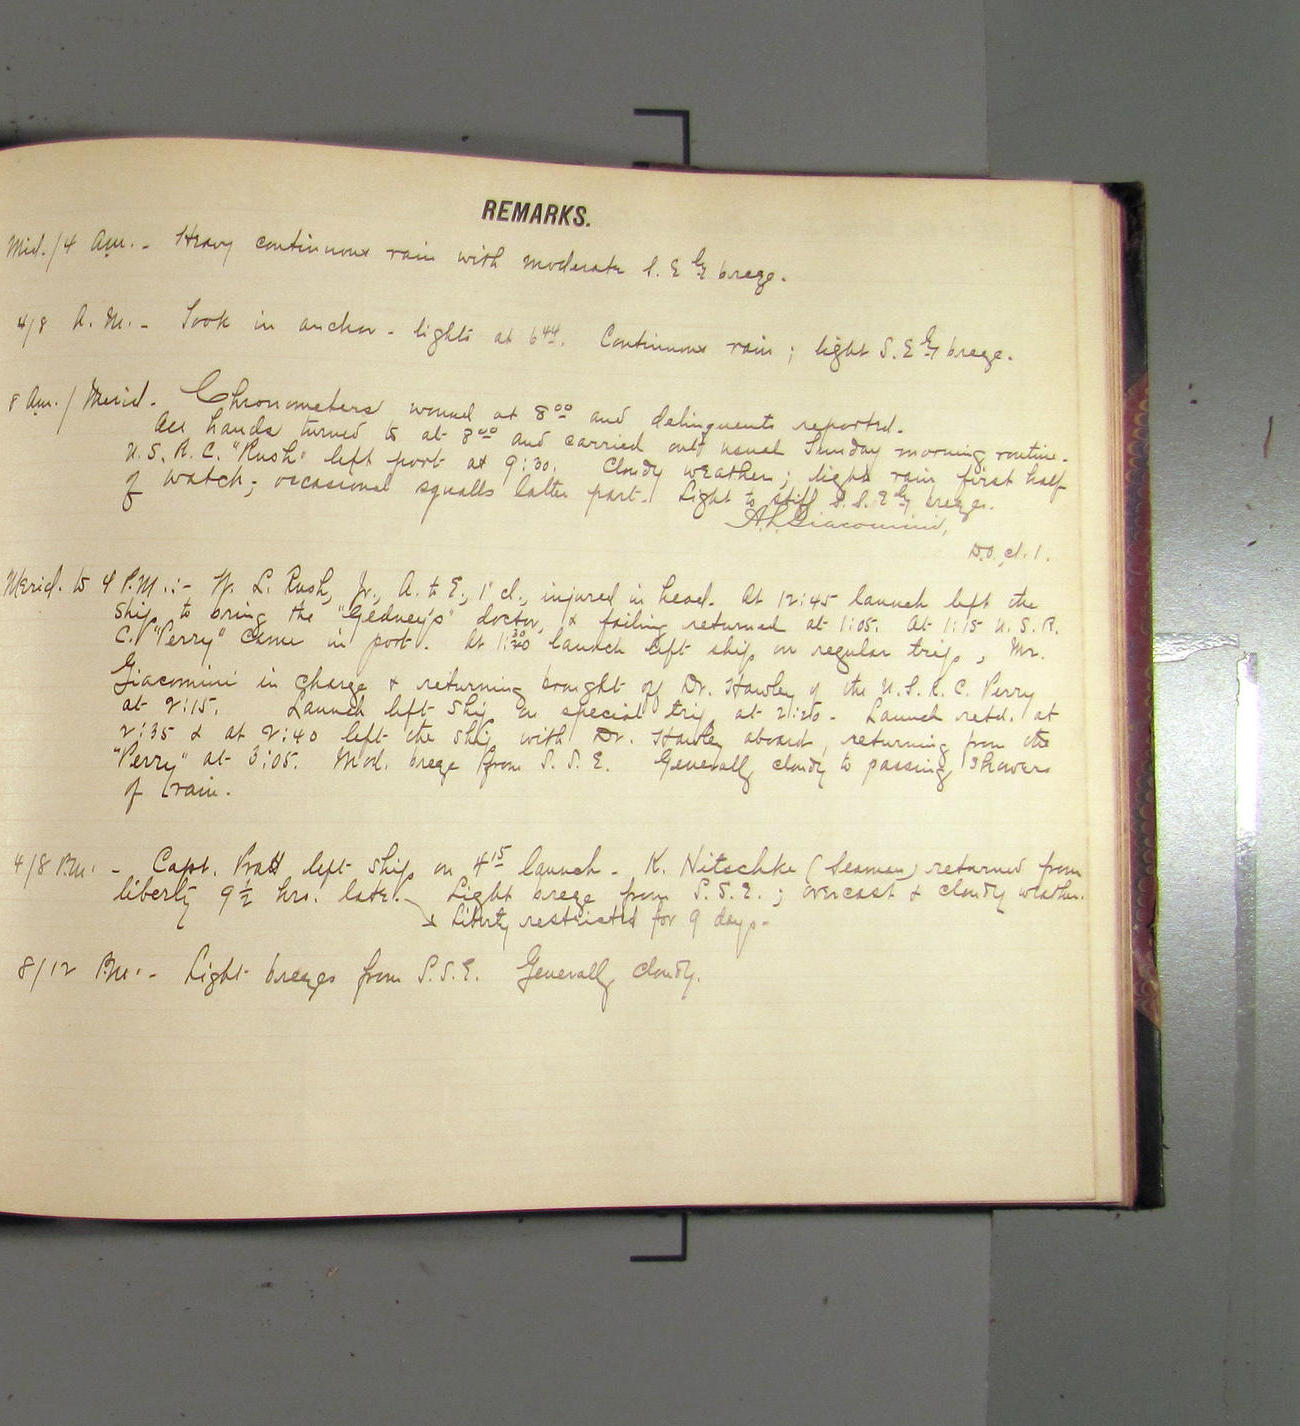 REMARKS.
Mid./4 Am. - Heavy continuous rain with moderate S.E'ly breeze.
4/8 A.M. - Took in anchor-lights at 6 44. Continuous rain; light S.E'ly breeze.
8 Am./Merid. - Chronometers wound at 8 00 and delinquents reported.
All hands turned to at 8 00 and carried out usual Sunday morning routine.
U.S.R.C. "Rush" left port at 9:30. Cloudy weather; light rain first half
of watch; occasional squalls latter part. Light to stiff S.S.E'ly breeze.
A.L. Giacomini,
D.O. cl. 1.
Merid. to 4 P.M.:- W. L. Rush, Jr., A. to E., 1' cl., injured in head. At 12:45 launch left the
ship to bring the "Gedney's" doctor, & failing returned at 1:05. At 1:15 U.S.R.
C. "Perry" came in port. At 1:30 launch left ship on regular trip, Mr.
Giacomini in charge & returning brought off Dr. Hawley of the U.S.R.C. Perry
at 2:15. Launch left ship on special trip at 2:20. Launch retd. at
2:35 & at 2:40 left the ship with Dr. Hawley aboard, returning from the
"Perry" at 3:05. Mod. breeze from S.S.E. Generally cloudy to passing showers
of rain.
4/8 P.M. - Capt. Pratt left ship on 4 15 launch. K. Nitschke (Seaman) returned from
liberty 9 1/2 hrs. late. Light breeze from S.S.E.; overcast & cloudy weather.
Liberty restricted for 9 days.
8/12 P.M. - Light breezes from S.S.E. Generally cloudy.